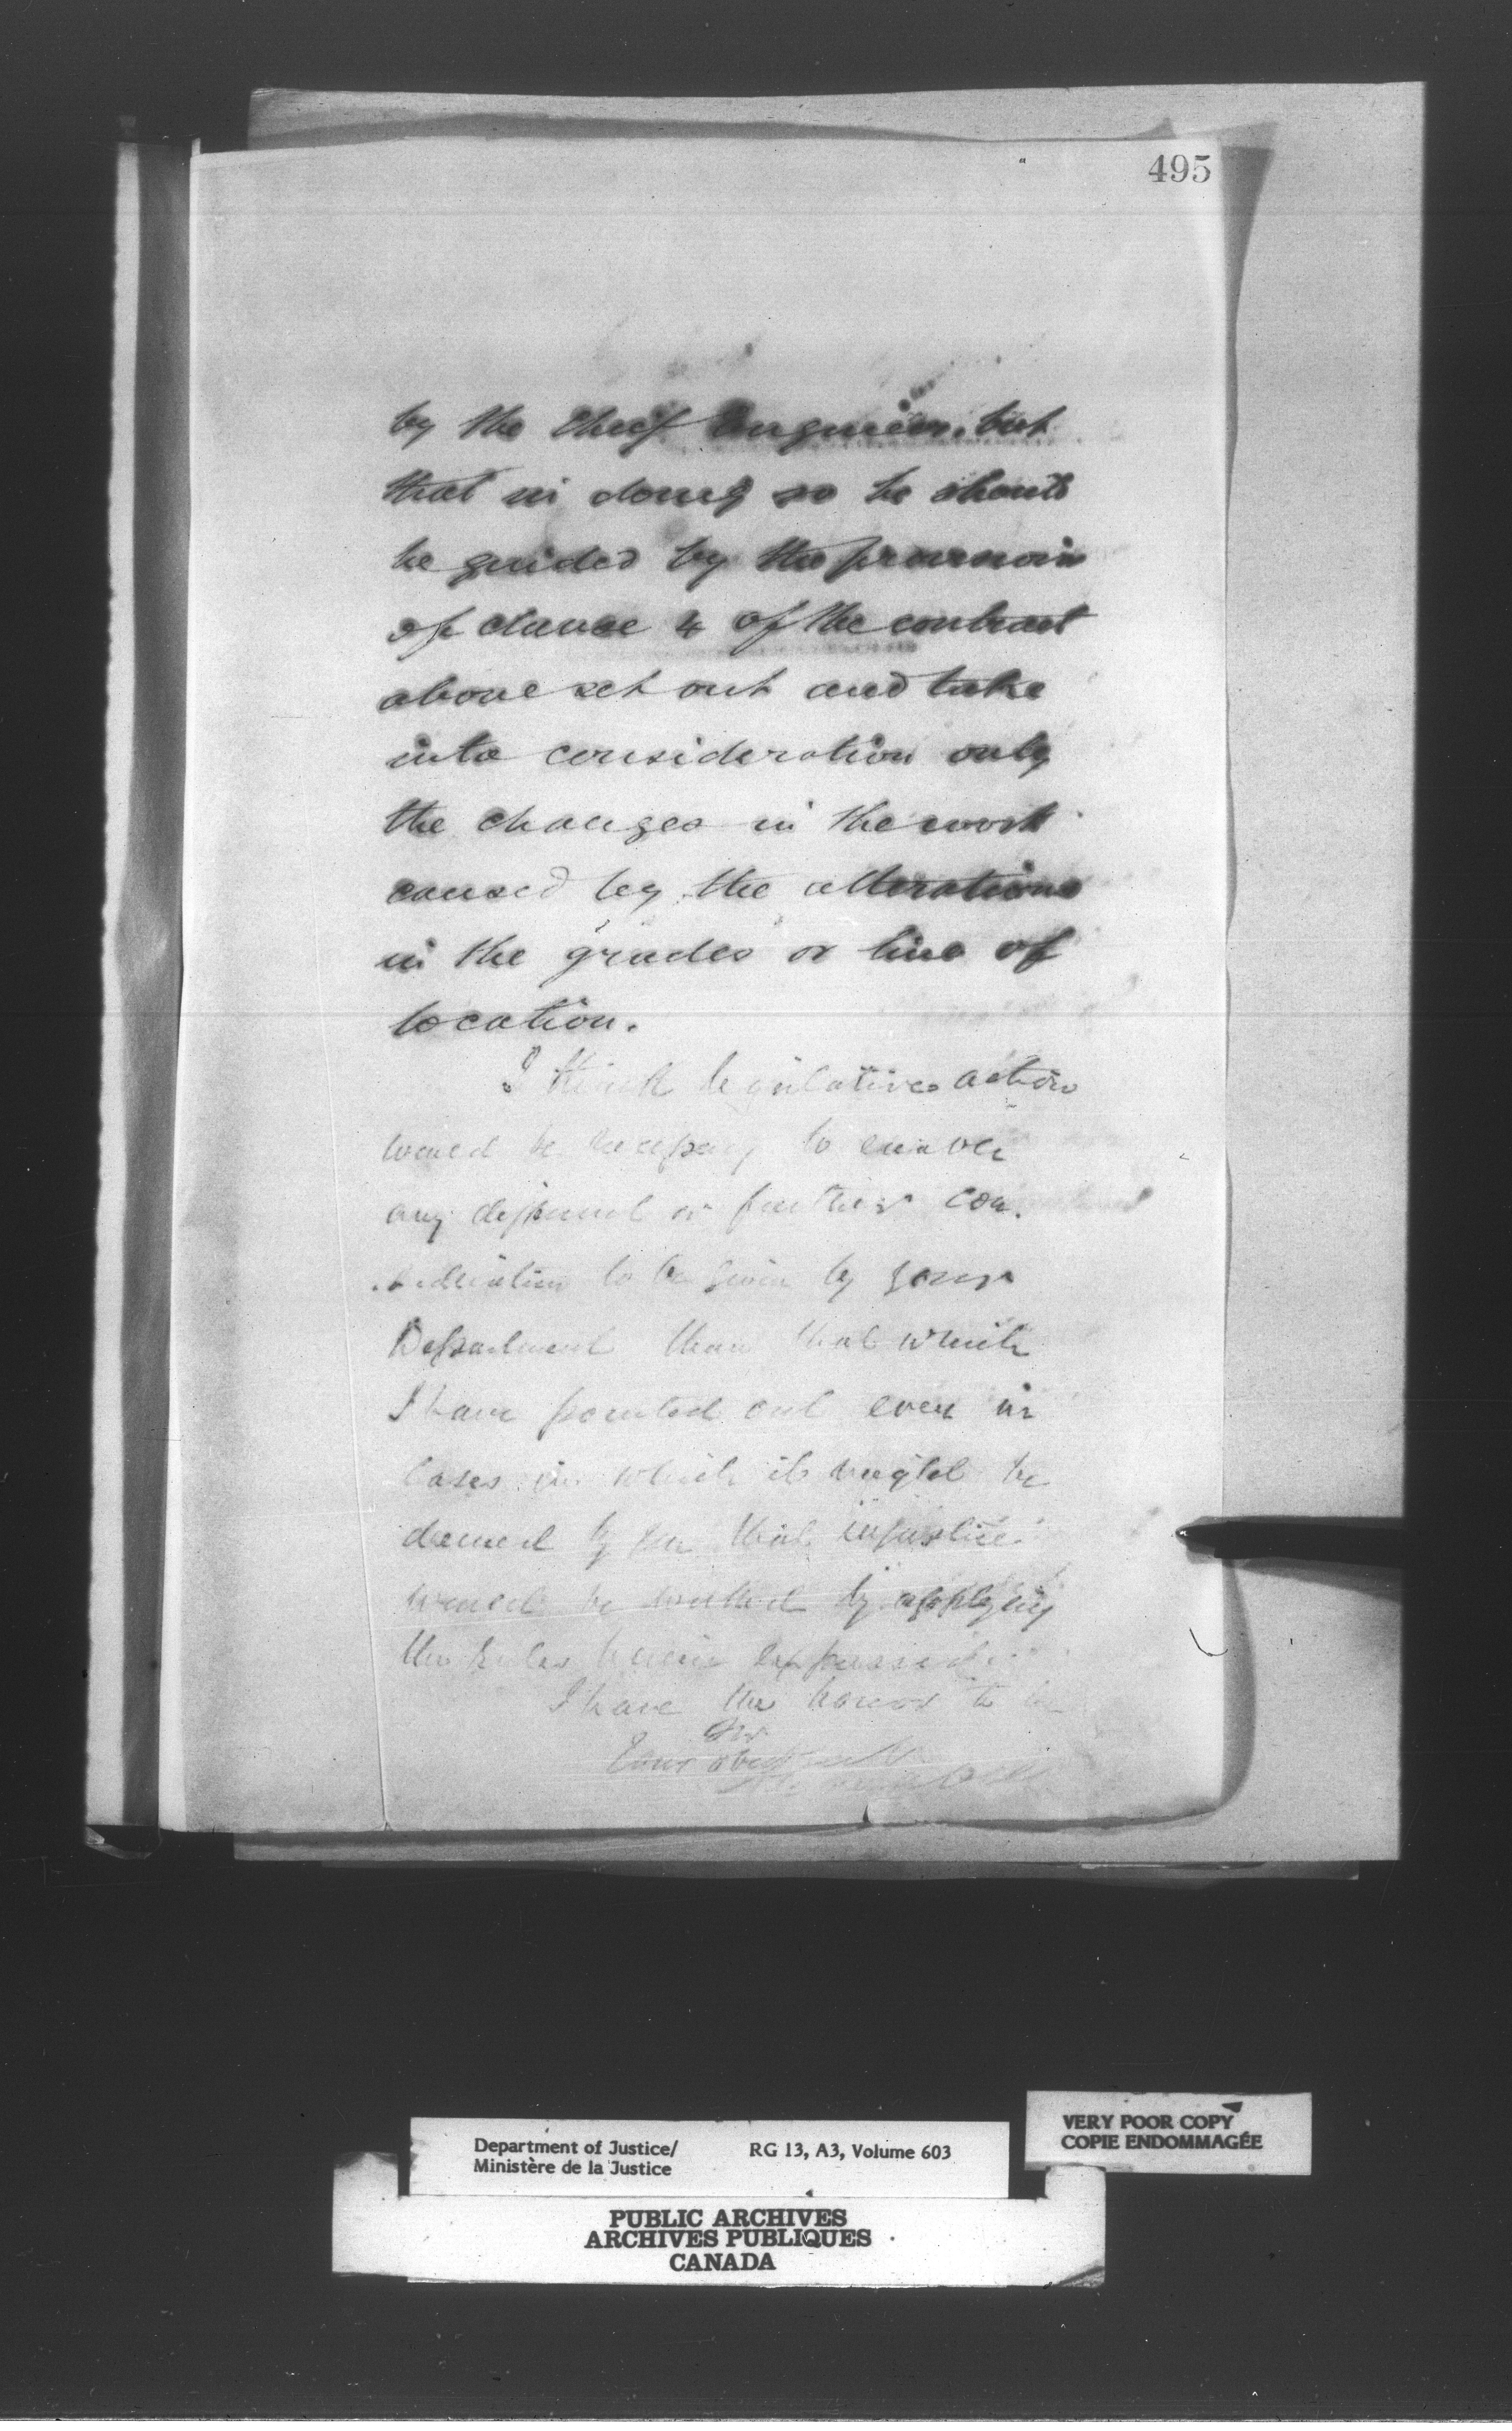 495
by the Chief Engineer, but
that in doing so he should
be guided by the provision
of clause 4 of the contract
above set out and take
into consideration only
the changes in the work
caused by the alterations
in the grades or line of
location.
I think legislative action
would be necessary to
any different or further con-
sideration to be given by your
Department than that which
I have pointed out even in
cases in which it might be
deemed by you that injustice
would be worked by applying
the rules herein expressed.
I have the honor to be
Sir
Your obedt
Department of Justice/
Ministère de la Justice
RG 13, A3, Volume 603
VERY POOR COPY
COPIE ENDOMMAGÉE
PUBLIC ARCHIVES
ARCHIVES PUBLIQUES
CANADA